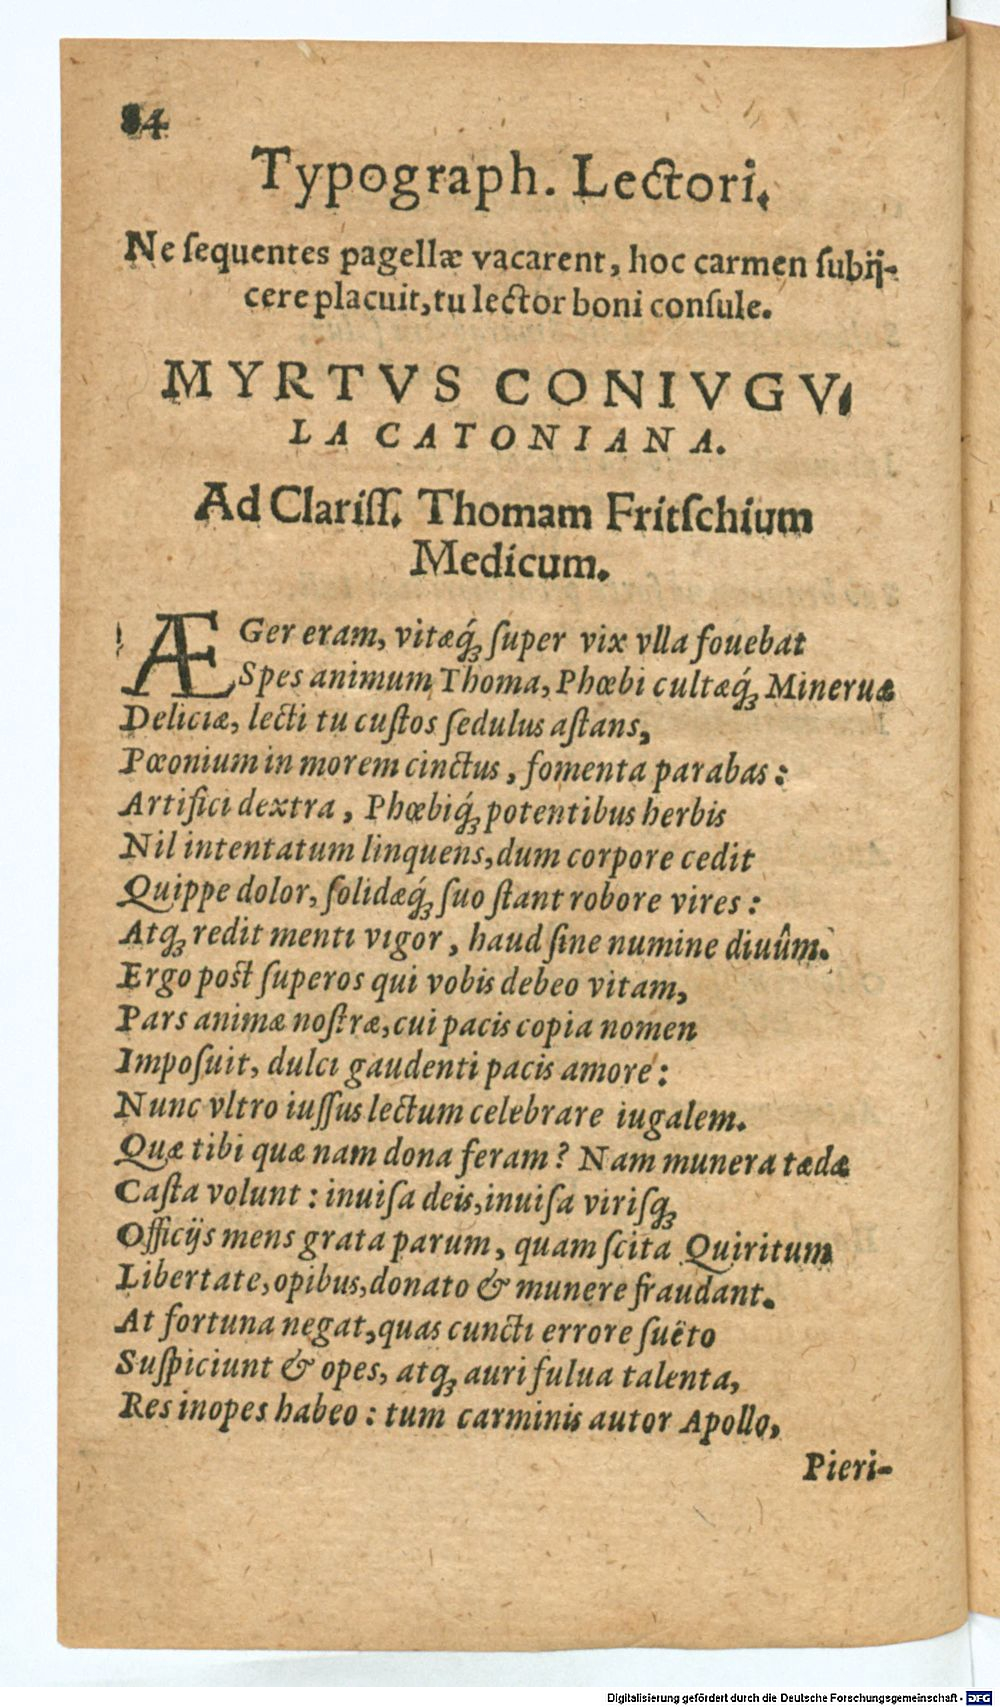 84
Typograph. Lectori.
Ne ſequentes pagellæ vacarent, hoc carmen ſubij-
cere placuit, tu lector boni conſule.
MYRTVS CONIVGV,
LA CATONIANA.
Ad Clariſſ. Thomam Fritſchium
Medicum.
ÆGer eram, vitæq́ꝫ ſuper vix vlla fouebat
Spes animum, Thoma, Phœbi cultæq́ꝫ Mineruæ
Deliciæ, lecti tu cuſtos ſedulus aſtans,
Pœonium in morem cinctus, fomenta parabas:
Artifici dextra, Phœbiq́ꝫ potentibus herbis
Nil intentatum linquens, dum corpore cedit
Quippe dolor, ſolidæq́ꝫ ſuo ſtant robore vires:
Atqꝫ redit menti vigor, haud ſine numine diuûm.
Ergo poſt ſuperos qui vobis debeo vitam,
Pars animæ noſtræ, cui pacis copia nomen
Impoſuit, dulci gaudenti pacis amore:
Nunc vltro iuſſus lectum celebrare iugalem.
Quæ tibi quæ nam dona feram? Nam munera tædæ
Caſta volunt: inuiſa deis, inuiſa viriſqꝫ
Officijs mens grata parum, quam ſcita Quiritum
Libertate, opibus, donato & munere fraudant.
At fortuna negat, quas cuncti errore ſuëto
Suſpiciunt & opes, atqꝫ auri fulua talenta,
Res inopes habeo: tum carminis autor Apollo,
Pieri-
Digitalisierung gefördert durch die Deutsche Forschungsgemeinschaft - DFG